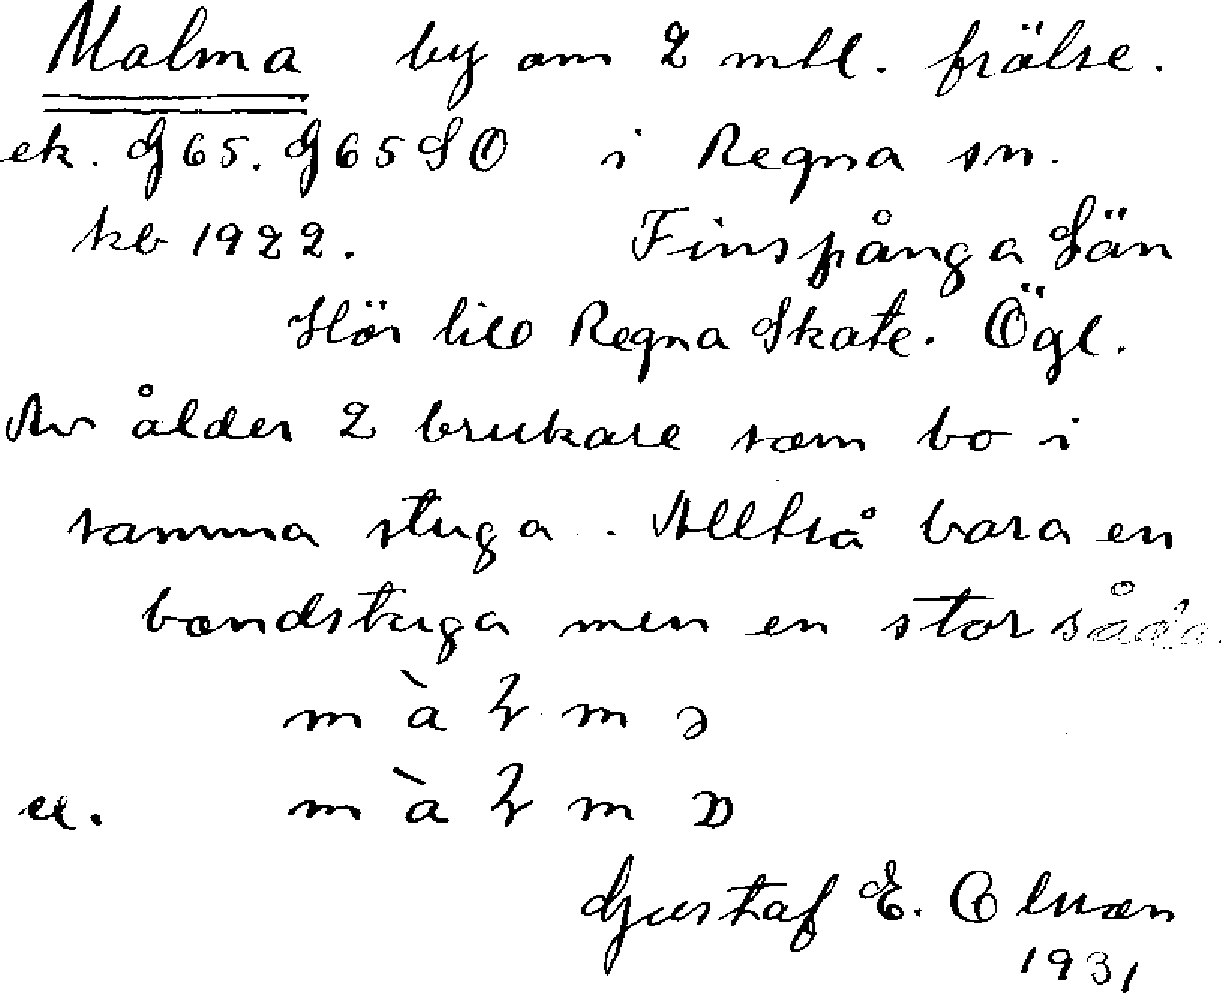 Malma by om 2 mtl. frälse.
ek. G65. G65SO i Regna sn.
kb 1922. Finspånga Län
Hör till Regna Skate. Ögl.
Av ålder 2 brukare som bo i
samma stuga. Alltså bara en
bondstuga men en stor såda
m à m
el. m à m
Gustaf E. Olsson
1931